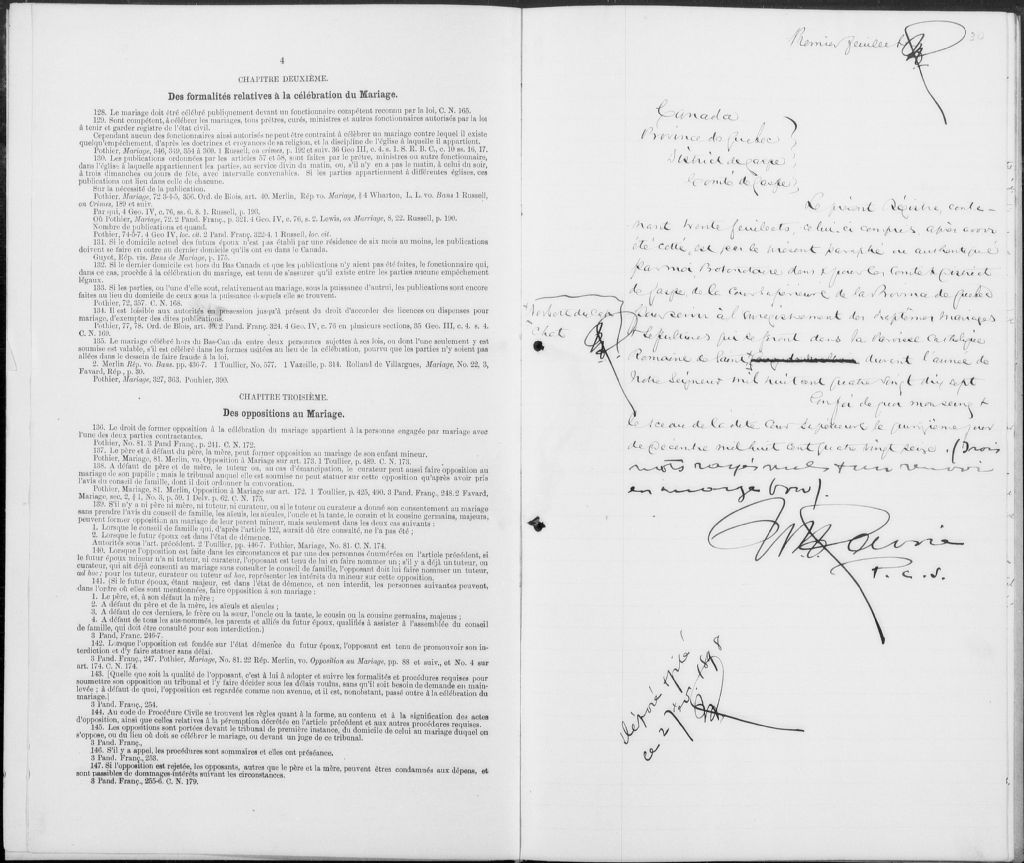 4
CHAPITRE DEUXIÈME.
Des formalités relatives à la célébration du Mariage.
128. Le mariage doit être célébré publiquement devant un fonctionnaire compétent reconnu par la loi, C. N. 165.
129. Sont compétent, à célébrer les mariages, tous prêtres, curés, ministres et autres fonctionnaires autorisés par la loi
à tenir et garder registre de l'état civil.
Cependant aucun des fonctionnaires ainsi autorisés ne peut être contraint à célébrer un mariage contre lequel il existe
quelqu'empêchement, d'après les doctrines et croyances de sa religion, et la discipline de l'église à laquelle il appartient.
Pothier, Mariage, 346, 349, 354 à 360. 1 Russell, on crimes, p. 192 et suiv. 36 Geo III, c. 4. s. 1. S. R. B. C., c 10 ss. 16, 17.
130. Les publications ordonnées par les articles 57 et 58, sont faites par le prêtre, ministres ou autre fonctionnaire,
dans l'église à laquelle appartiennent les parties, au service divin du matin, ou, s'il n'y en a pas le matin, à celui du soir,
à trois dimanches ou jours de fête, avec intervalle convenables. Si les parties appartiennent à différentes églises, ces
publications ont lieu dans celle de chacune.
Sur la nécessité de la publication.
Pothier, Mariage, 72 3-4-5, 356. Ord. de Blois, art. 40. Merlin, Rép vo. Mariage, § 4 Wharton, L. L. vo. Bans 1 Russell,
on Crimes, 189 et suiv.
Par qui, 4 Geo. IV, c. 76, ss. 6, 8. 1. Russell, p. 193.
Où Pothier, Mariage, 72. 2 Pand. Franç., p. 321. 4 Geo. IV, c. 76, s. 2. Lewis, on Marriage, 8, 22. Russell, p. 190.
Nombre de publications et quand.
Pothier, 74-5-7. 4 Geo IV, loc. cit. 2 Pand. Franç. 322-4. 1 Russell, loc. cit.
131. Si le domicile actuel des futurs époux n'est pas établi par une résidence de six mois au moins, les publications
doivent se faire en outre au dernier domicile qu'ils ont eu dans le Canada.
Guyot, Rép. vis. Bans de Mariage, p. 175.
132. Si le dernier domicile est hors du Bas Canada et que les publications n'y aient pas été faites, le fonctionnaire qui,
dans ce cas, procède à la célébration du mariage, est tenu de s'assurer qu'il existe entre les parties aucune empêchement
légaux.
133. Si les parties, ou l'une d'elle sout, relativement au mariage, sous la puissance d'autrui, les publications sont encore
faites au lieu du domicile de ceux sous la puissance desquels elle se trouvent.
Pothier, 72, 357. C. N. 168.
134. Il est loisible aux autorités en possession jusqu'à présent du droit d'accorder des licences ou dispenses pour
mariage, d'exempter des dites publications.
Pothier, 77, 78. Ord. de Blois, art. 40. 2 Pand. Franç. 324. 4 Geo. IV, c. 76 en plusieurs sections, 35 Geo. III, c. 4. s. 4.
C. N. 169.
135. Le mariage célébré hors du Bas-Canada entre deux personnes sujettes à ses lois, ou dont l'une seulement y est
soumise est valable, s'il est célébré dans les formes usitées au lieu de la célébration, pourvu que les parties n'y soient pas
allées dans le dessein de faire fraude à la loi.
2. Merlin Rép. vo. Bans. pp. 436-7. 1 Toullier, No. 577. 1 Vazeille, p. 314. Rolland de Villargues, Mariage, No. 22, 3,
Favard, Rép., p. 30.
Pothier, Mariage, 327, 363. Pouhier, 390.
CHAPITRE TROISIÈME.
Des oppositions au Mariage.
136. Le droit de former opposition à la célébration du mariage appartient à la personne engagée par mariage avec
l'une des deux parties contractantes.
Pothier, No. 81. 3 Pand Franç., p. 241. C. N. 172.
137. Le père et à défaut du père, la mère, peut former opposition au mariage de son enfant mineur.
Pothier, Mariage, 81. Merlin, vo. Opposition à Mariage sur art. 173. 1 Toullier, p. 489. C. N. 173.
138. A défaut de père et de mère, le tuteur ou, au cas d'émancipation, le curateur peut aussi faire opposition au
mariage de son pupille; mais le tribunal auquel elle est soumise ne peut statuer sur cette opposition qu'après avoir pris
l'avis du conseil de famille, dont il doit ordonner la convocation.
Pothier, Mariage, 81. Merlin, Opposition à Mariage sur art. 172. 1 Toullier, p. 425, 490. 3 Pand. Franç., 248. 2 Favard,
Mariage, sec. 2, § 1, No. 3, p. 59. 1 Delv. p. 62. C. N. 175.
139. S'il n'y a ni père ni mère, ni tuteur, ni curateur, ou si le tuteur ou curateur a donné son consentement au mariage
sans prendre l'avis du conseil de famille, les aïeuls, les aïeules, l'oncle et la tante, le cousin et la cousine germains, majeurs,
peuvent former opposition au mariage de leur parent mineur, mais seulement dans les deux cas suivants :
1. Lorsque le conseil de famille qui, d'après l'article 122, aurait dû être consulté, ne l'a pas été ;
2. Lorsque le futur époux est dans l'état de démence.
Autorités sous l'art. précédent. 2 Toullier, pp. 446-7. Pothier, Mariage, No. 81. C. N. 174.
140. Lorsque l'opposition est faite dans les circonstances et par une des personnes énumérées en l'article précédent, si
le futur époux mineur n'a ni tuteur, ni curateur, l'opposant est tenu de lui en faire nommer un ; s'il y a déjà un tuteur, ou
curateur, qui ait déjà consenti au mariage sans consulter le conseil de famille, l'opposant doit lui faire nommer un tuteur,
ad hoc ; pour les tuteur, curateur ou tuteur ad hoc, représenter les intérêts du mineur sur cette opposition.
141. (Si le futur époux, étant majeur, est dans l'état de démence, et non interdit, les personnes suivantes peuvent,
dans l'ordre où elles sont mentionnées, faire opposition à son mariage :
1. Le père, et, à son défaut la mère ;
2. A défaut du père et de la mère, les aïeuls et aïeules ;
3. A défaut de ces derniers, le frère ou la sœur, l'oncle ou la tante, le cousin ou la cousine germains, majeurs ;
4. A défaut de tous les sus-nommés, les parents et alliés du futur époux, qualifiés à assister à l'assemblée du conseil
de famille, qui doit être consulté pour son interdiction.)
3 Pand, Franç. 246-7.
142. Lorsque l'opposition est fondée sur l'état démence du futur époux, l'opposant est tenu de promouvoir son in-
terdiction et d'y faire statuer sans délai.
3 Pand. Franç., 247. Pothier, Mariage, No. 81. 22 Rép. Merlin, vo. Opposition au Mariage, pp. 88 et suiv., et No. 4 sur
art. 174. C. N. 174.
143. [Quelle que soit la qualité de l'opposant, c'est à lui à adopter et suivre les formalités et procédures requises pour
soumettre son opposition au tribunal et l'y faire décider sous les délais voulus, sans qu'il soit besoin de demande en main-
levée ; à défaut de quoi, l'opposition est regardée comme non avenue, et il est, nonobstant, passé outre à la célébration du
mariage.]
3 Pand. Franç., 254.
144. Au code de Procédure Civile se trouvent les règles quant à la forme, au contenu et à la signification des actes
d'opposition, ainsi que celles relatives à la péremption décrétée en l'article précédent et aux autres procédures requises.
145. Les oppositions sont portées devant le tribunal de première instance, du domicile de celui au mariage duquel on
s'oppose, ou du lieu où doit se célébrer le mariage, ou devant un juge de ce tribunal.
3 Pand. Franç.,
146. S'il y a appel, les procédures sont sommaires et elles ont préséance.
3 Pand. Franç., 258.
147. Si l'opposition est rejetée, les opposants, autres que le père et la mère, peuvent êtres condamnés aux dépens, et
sont passibles de dommages-intérêts suivant les circonstances.
3 Pand. Franç., 255-6. C. N. 179.
Premier feuillet
30
Canada
Province de Québec
District de Gaspé
Comté de Gaspé
Le présent Régistre, conte-
nant trente feuillets, celui-ci compris après avoir
été cotté, est par le présent paraphé ou authentiqué
par moi Protonotaire dans & pour les Comté & District
de Gaspé, de la Cour Supérieure de la Province de Québec
pour servir à l'enrégistrement des Baptêmes Mariages
& Sépultures qui se feront dans la Paroisse Catholique
Romaine de Saint durant l'année de
Notre Seigneur mil huit cent quatre vingt dix sept
Norbert du Cap
Chat
En foi de quoi mon seing &
le sceau de la dite Cour Supérieure le quinzième jour
de Décembre mil huit cent quatre vingt seize. (Trois
mots rayés nuls & un renvoi
en marge bon).
P. C. S.
Déposé & filé
ce 27 1898